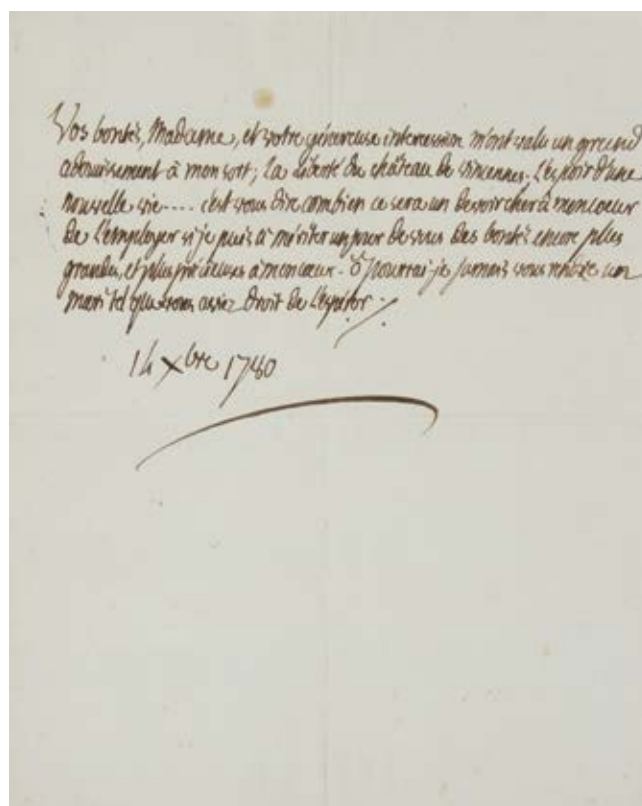 Vos bontés, Madame, et votre généreuse intercession m'ont valu un grand
adoucissement à mon sort; la liberté du château de vincennes. L'espoir d'une
nouvelle vie.... c'est vous dire combien ce sera un devoir cher à mon cœur
de L'employer si je puis à mériter un jour de vous des bontés encore plus
grandes, et plus précieuses à mon cœur. ô pourrai-je jamais vous rendre un
mari tel que vous aviez droit de L'espérer.
14 Xbre 1780